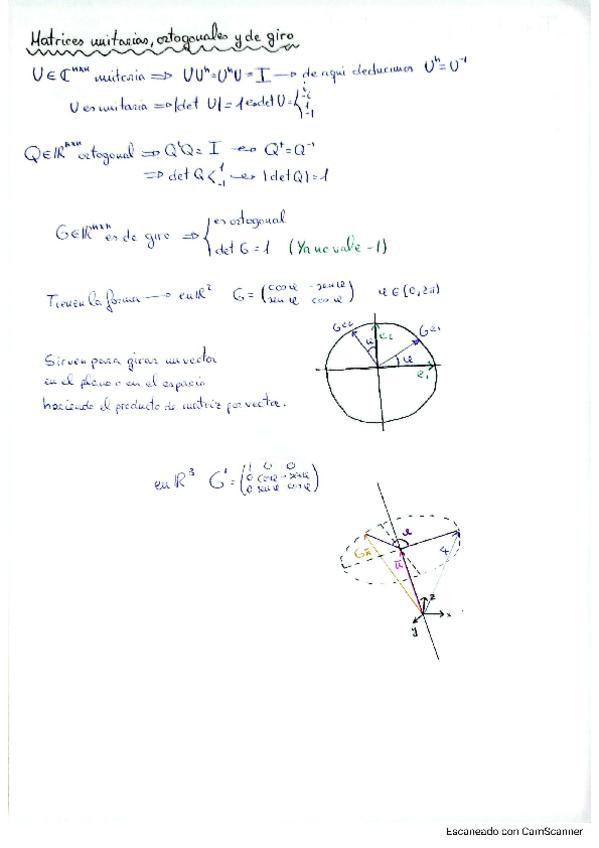 Matrices unitarias, ortogonales y de giro
U ∈ ℂⁿˣⁿ unitaria ⇒ UUʰ = UʰU = I → de aqui deducimos Uʰ = U⁻¹
U es unitaria ⇒ |det U| = 1 det U =
Q ∈ ℝⁿˣⁿ ortogonal ⇒ QᵗQ = I ↔ Qᵗ = Q⁻¹
⇒ det Q < 1 -1 ↔ |det Q| = 1
G ∈ ℝⁿˣⁿ es de giro ⇒ { es ortogonal
det G = 1 (Ya no vale -1)
Tienen la forma → en ℝ² G = (cos φ -sen φ
sen φ cos φ) φ ∈ (0, 2π)
Ge₂ e₂ Ge₁
φ φ
e₁
Sirven para girar un vector
en el plano o en el espacio
haciendo el producto de matriz por vector.
en ℝ³ G¹ = (1 0 0
0 cos φ -sen φ
0 sen φ cos φ)
z
x
y
Escaneado con CamScanner